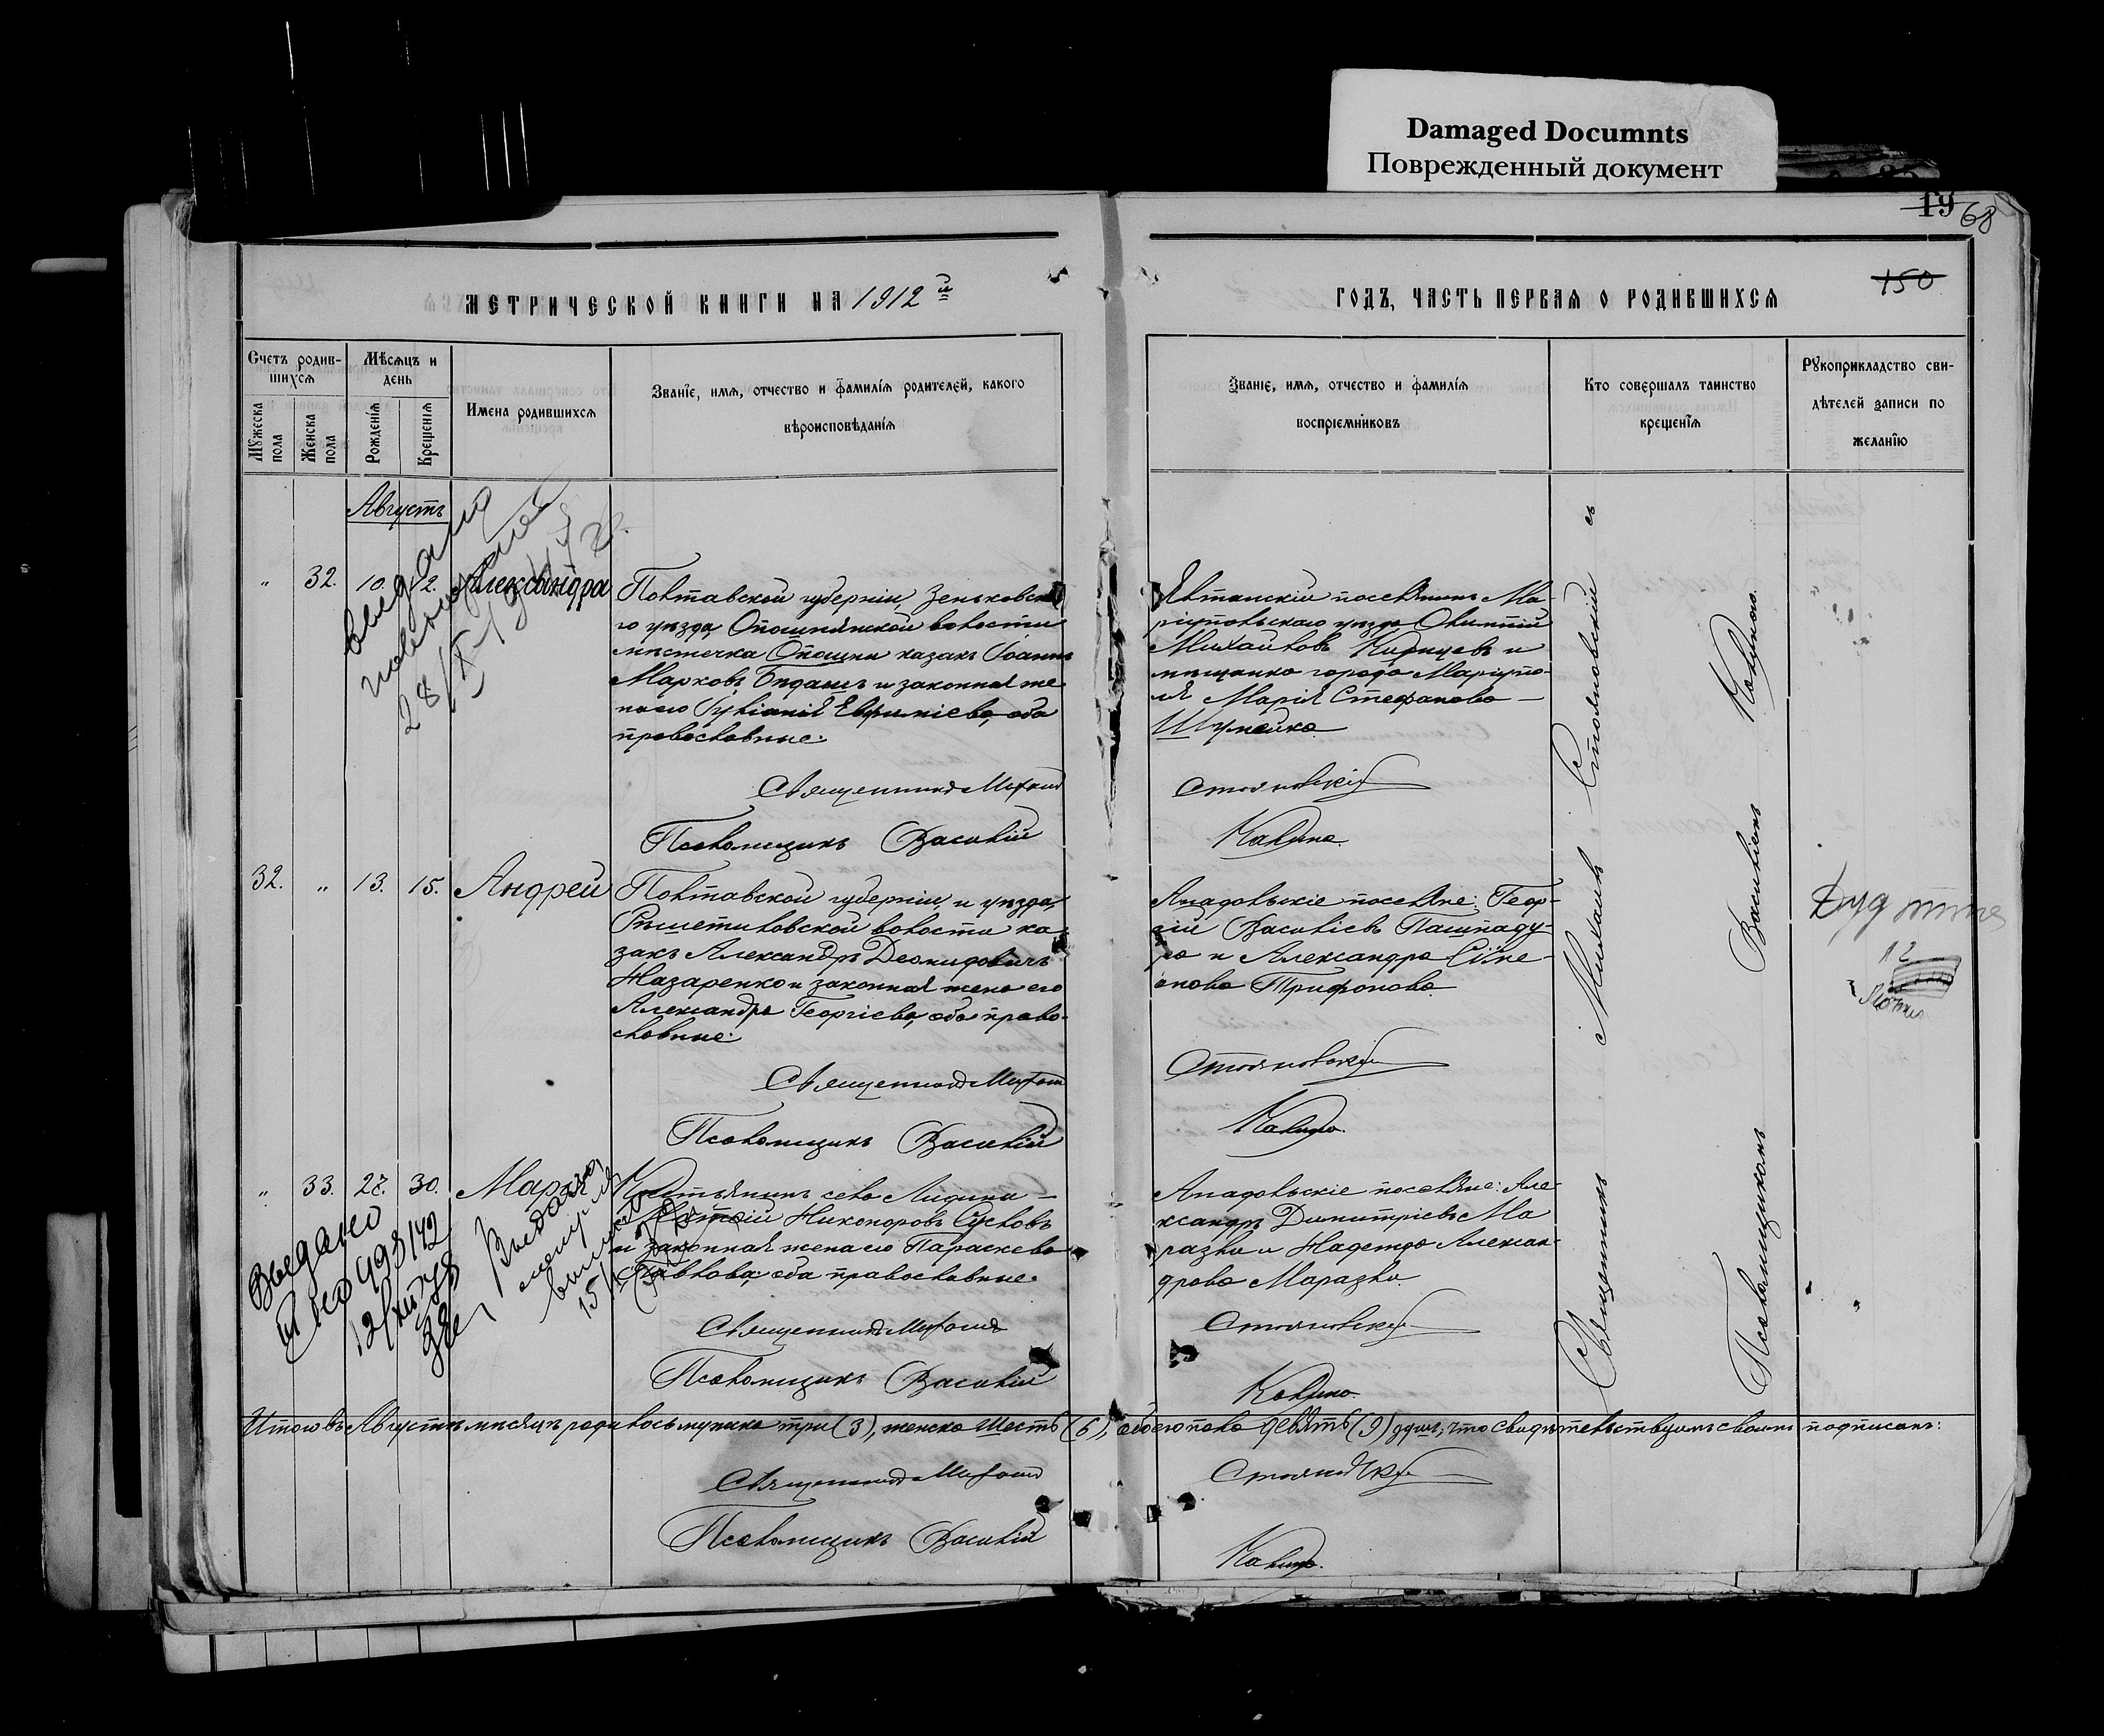 Damaged Documnts
Поврежденный документ
19 68
150
МЕТРИЧЕСКОЙ КНИГИ НА 1912й
ГОДЪ, ЧАСТЬ ПЕРВАЯ О РОДИВШИХСЯ
Счетъ родив-
шихся
Мужеска пола
Женска пола
Мѣсяцъ и
день
Рожденія
Крещенія
Имена родившихся
Званіе, имя, отчество и фамилія родителей, какого
вѣроисповѣданія
Званіе, имя, отчество и фамилія
воспріемниковъ
Кто совершалъ таинство
крещенія
Рукоприкладство сви-
дѣтелей записи по
желанію
Августъ
„ 32. 10. 12. Александра
Полтавской губерніи, Зеньковска
го уѣзда, Опошнянской волости
мѣстечка Опошни казакъ Іоаннъ
Марковъ Бидашъ и законная же
на его Гликерія Евфиміева, оба
православные.
Священникъ Михаилъ
Псаломщикъ Василій
Ялтинскій поселянинъ Ма-
ріупольскаго уѣзда
Михайловъ и
мѣщанка города Маріупо-
ля Марія Стефанова
Шумейко
Стояновскій
Калино.
выдано
28/X-
32. „ 13. 15. Андрей
Полтавской губерніи и уѣзда,
Рѣшетиловской волости ка-
закъ Александръ Леонидовичъ
Назаренко и законная жена его
Александра Георгіева, оба право-
славные.
Священникъ Михаилъ
Псаломщикъ Василій
поселяне: Геор-
гій Василіевъ Пашпаду-
ра и Александра Симе-
онова Трифонова.
Стояновскій
Калино.
Дубликат
„ 33. 27. 30. Марія
Крестьянинъ села Лидина
Никоноровъ Сусловъ
и законная жена его Параскева
Павлова, оба православные.
Священникъ Михаилъ
Псаломщикъ Василій
поселяне: Але-
ксандръ Димитріевъ Ма
разли и Надежда Алексан-
дрова Маразли.
Стояновскій
Калино.
Выдано
Выдано
Священникъ Михаилъ Стояновскій съ
Псаломщикомъ Василіемъ Калиною.
Итого въ Августѣ мѣсяцѣ родилось мужеска три (3), женска шесть (6), обоего пола девять (9) душъ, что свидѣтельствуемъ своимъ подписомъ:
Священникъ Михаилъ
Стояновскій
Псаломщикъ Василій
Калино.